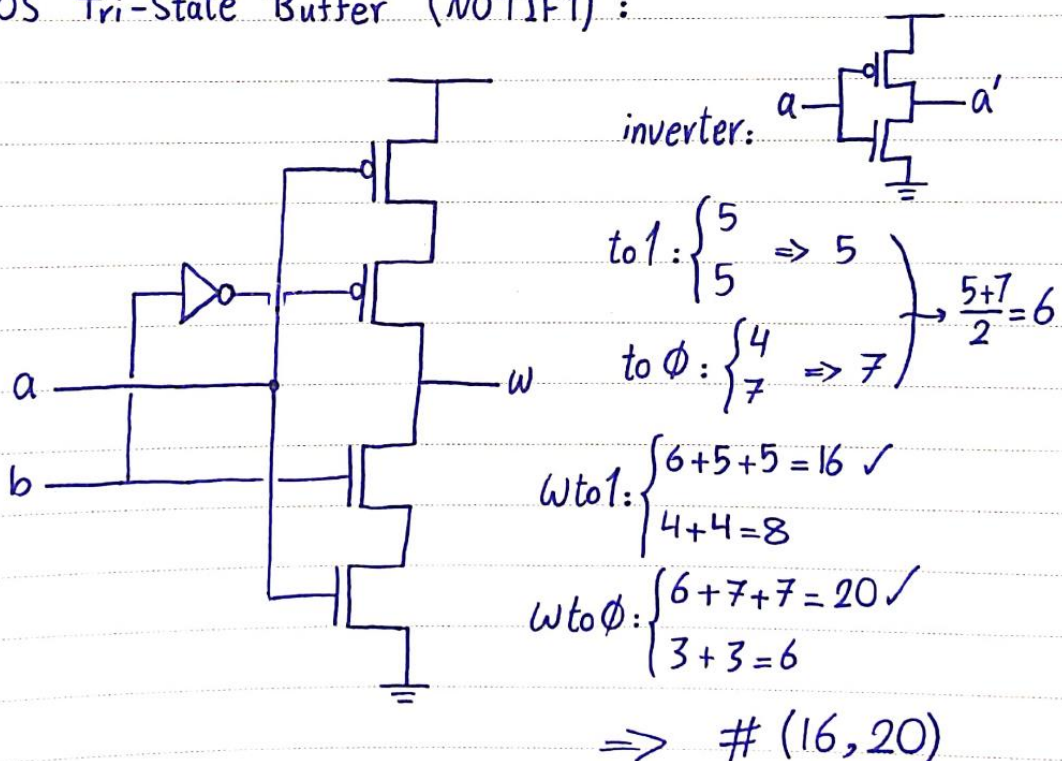 OS Tri-State Buffer (NOTIF1) :
inverter:
a
a'
to 1 : { 5
5 => 5
to ∅ : { 4
7 => 7
→ 5+7/2 = 6
a
w
b
w to 1 : { 6+5+5 = 16 ✓
4+4 = 8
w to ∅ : { 6+7+7 = 20 ✓
3+3 = 6
=> # (16,20)